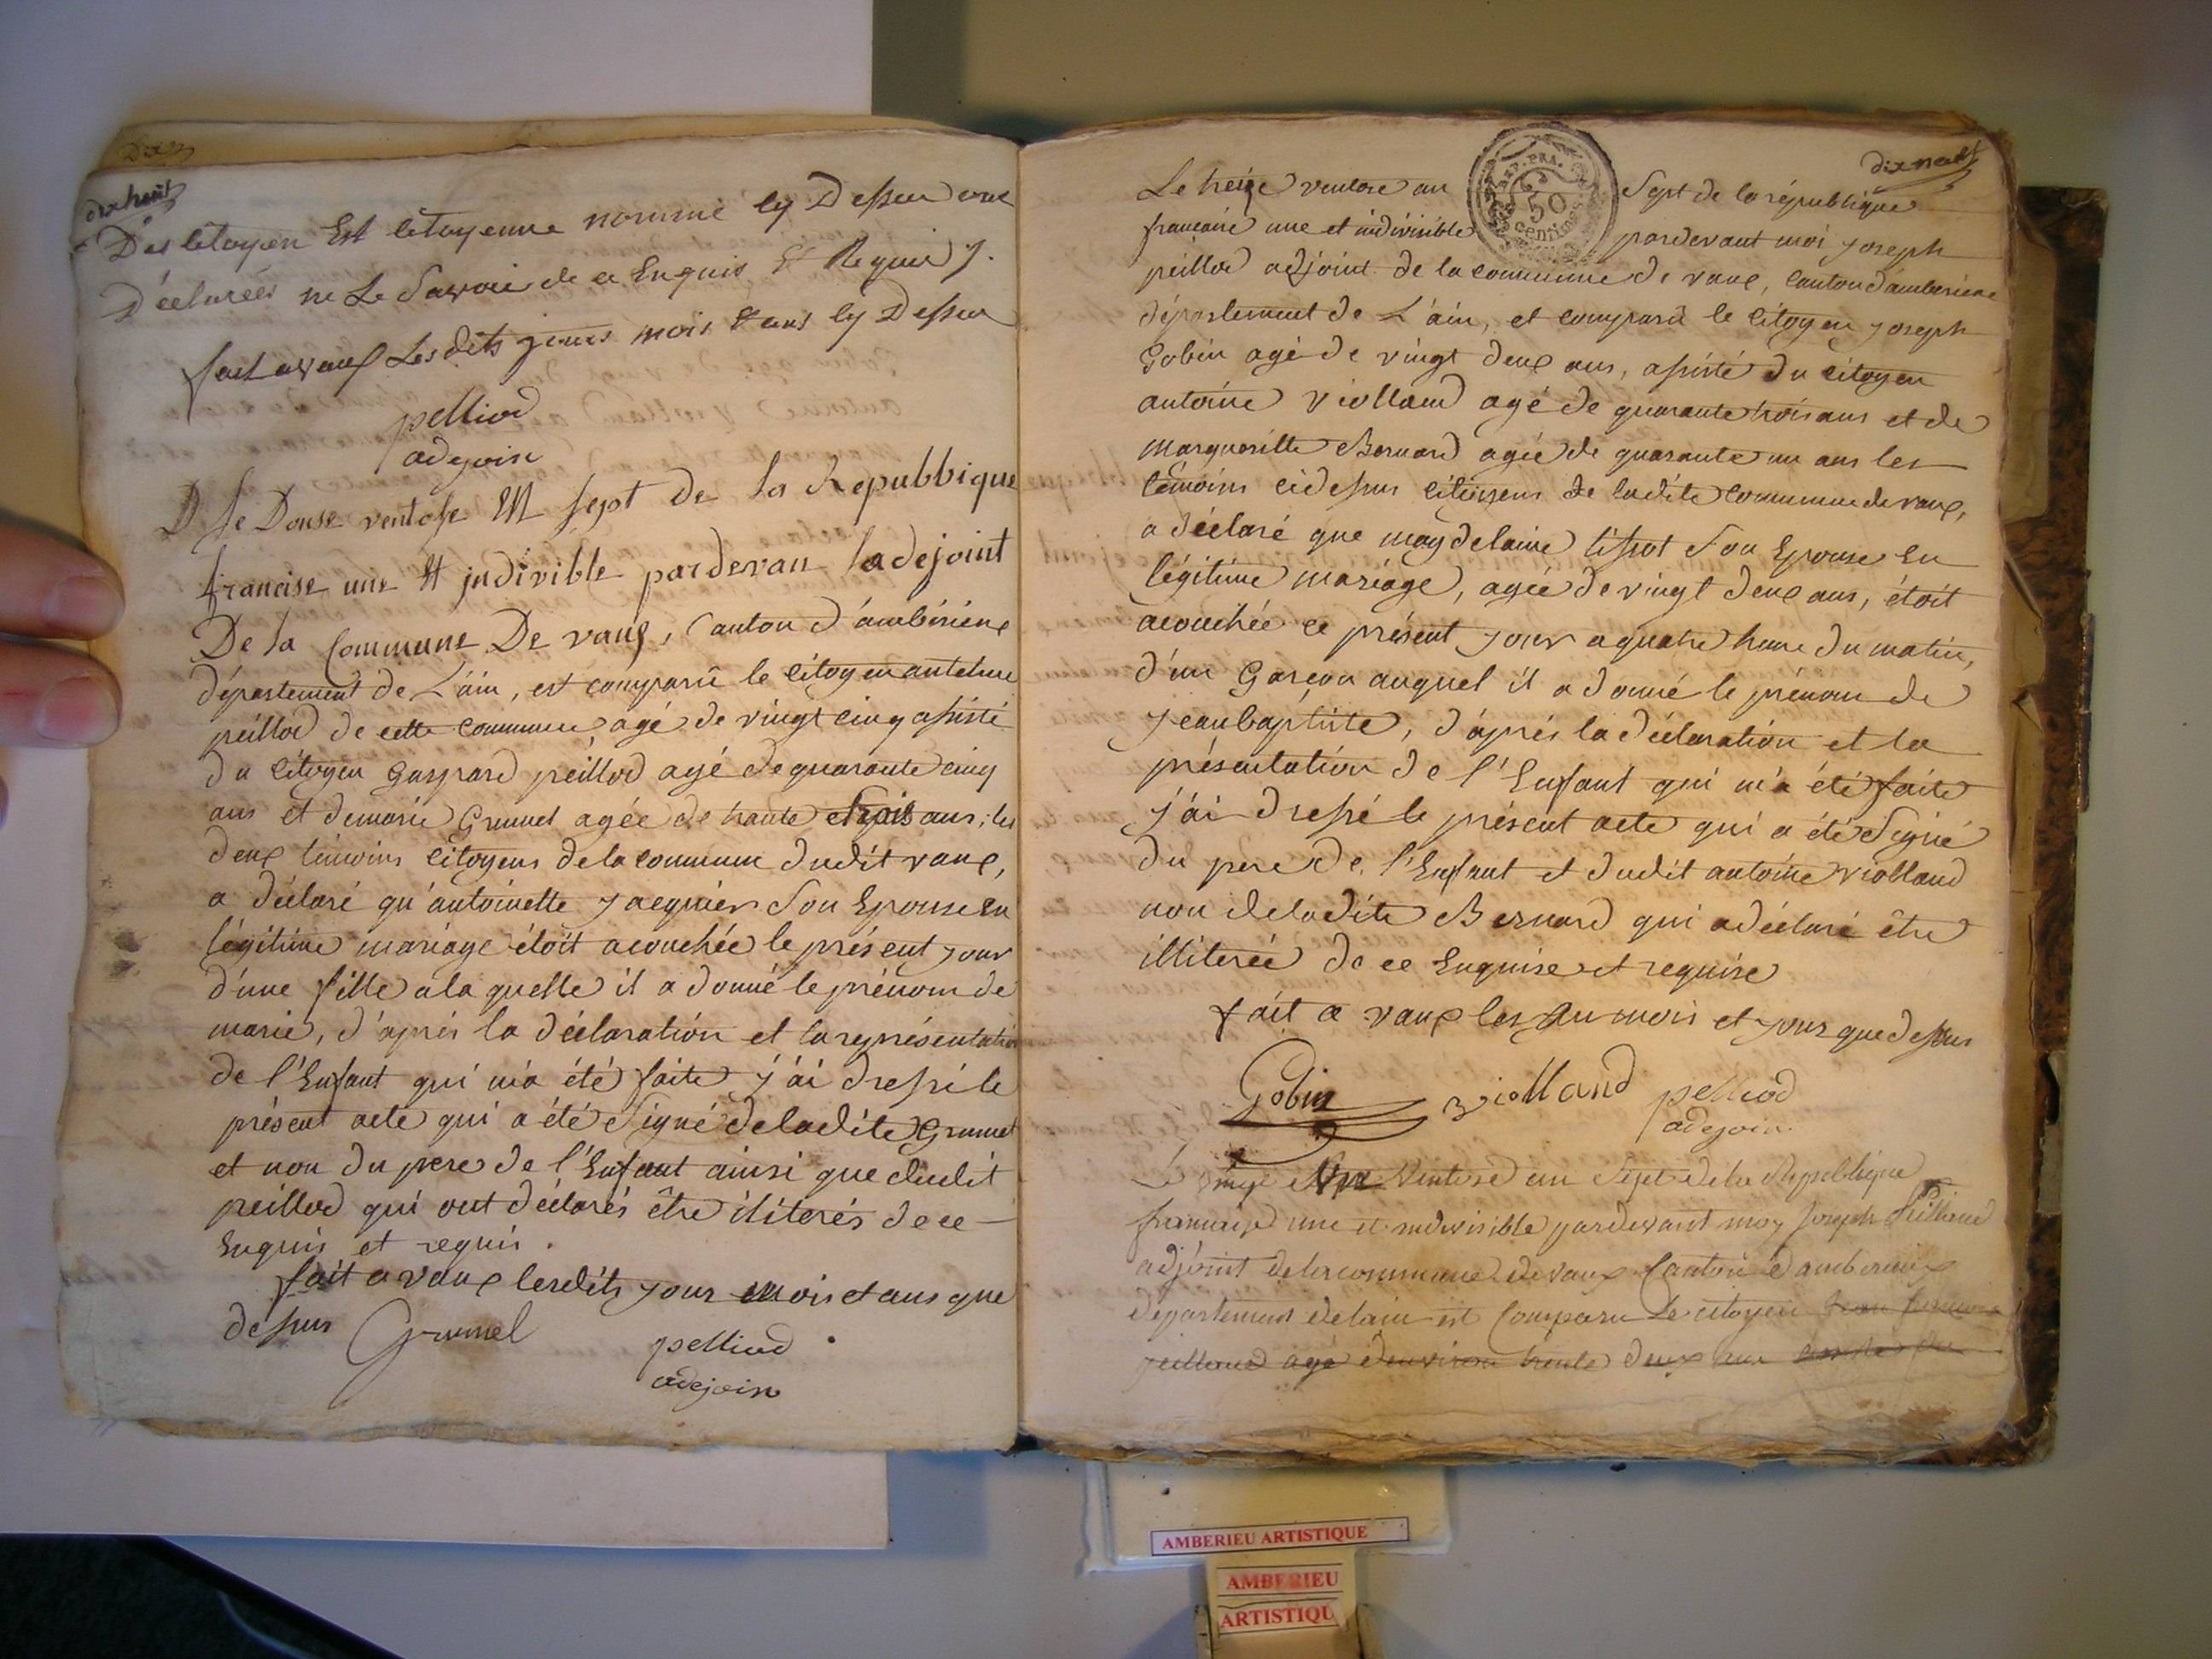 dix huit
Des citoyen Est citoyenne nommé cy Dessu ont
Déclarées ne Le Savoir de ce Enquis Et Requis
fait a vaux Lesdits jours mois Et ans cy Dessu
pelliod
adejoin
Le Douse ventose EN sept de la Repubbique
francise une Et jndivible pardevan ladejoint
De la Commune De vaux, Canton d'ambérieux
département de L'ain, est comparû le Citoyen antelme
peillod de cette commune, agé de vingt cinq assisté
du Citoyen Gaspard peillod agé de quarante cinq
ans et de marie Grumet agée de trante et trois ans, les
deux temoins Citoyens de la commune dudit vaux,
a déclaré qu'antoinette jacquier Son Epouse En
légitime mariage étoit acouchée le présent jour
d'une fille a la quelle il a donné le prénom de
marie, d'après la déclaration et la représentation
de l'Enfant qui m'a été faite j'ai dressé le
présent acte qui a été Signé de ladite Grumet
et non du pere de l'Enfant ainsi que dudit
peillod qui ont déclarés être illiterés de ce
Enquis et requis.
fait a vaux lesdits jour mois et ans que
dessus
Grumel
pelliod
adejoin
dix neuf
REP. FRA.
50
centimes
Le treize ventose an Sept de la république
francaise une et indivisible pardevant moi joseph
peillod adjoint de la commune de vaux, canton d'ambérieux
département de L'ain, est comparû le Citoyen joseph
Gobin agé de vingt deux ans, assisté du Citoyen
antoine violland agé de quarante trois ans et de
Margueritte Bernard agée de quarante un ans les
témoins cidessus citoyens de ladite Commune de vaux,
a déclaré que magdelaine tissot Son Epouse En
légitime mariage, agée de vingt deux ans, étoit
acouchée ce présent jour a quatre heure du matin,
d'un Garçon auquel il a donné le prénom de
jean baptiste, d'après la déclaration et la
présentation de l'Enfant qui m'a été faite
j'ai dressé le présent acte qui a été Signé
du pere de l'Enfant et dudit antoine violland
non de ladite Bernard qui a déclaré être
illiterée de ce Enquise et requise
fait a vaux les an mois et jour que dessus
Gobin violland pelliod
adejoin
Le Ventose an Sept de la Republique
francaise une et indivisible pardevant moy Joseph Peilloud
adjoint de la commune de vaux Canton d'amberieux
departement de lain est Comparu Le citoyen
peilloud agé d'environ trente deux ans
AMBERIEU ARTISTIQUE
AMBERIEU
ARTISTIQU